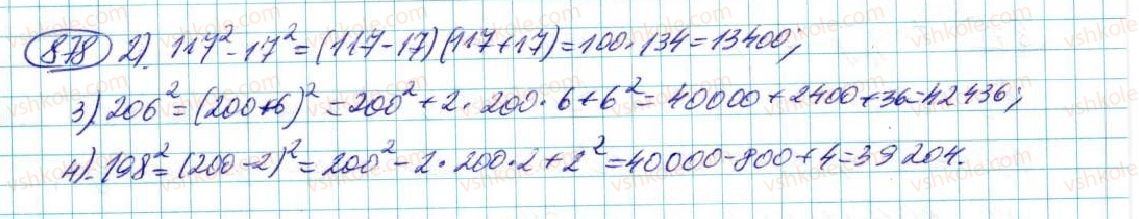 878 2). 117² - 17² = (117 - 17)(117 + 17) = 100 · 134 = 13400;
3) 206² = (200 + 6)² = 200² + 2 · 200 · 6 + 6² = 40000 + 2400 + 36 = 42436;
4). 198² = (200 - 2)² = 200² - 2 · 200 · 2 + 2² = 40000 - 800 + 4 = 39204.
vshkole.com